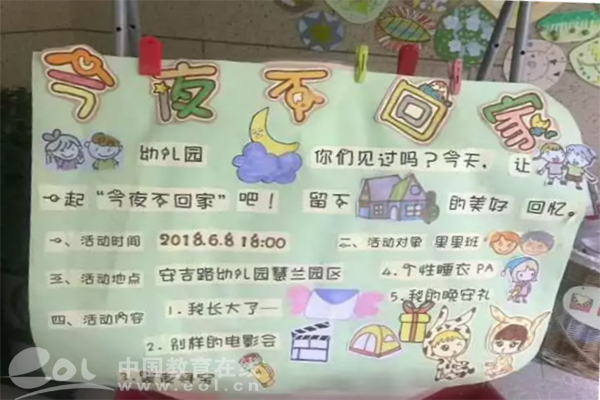 今夜不回家
幼儿园 你们见过吗？今天，让
一起“今夜不回家”吧！ 留下 的美好 回忆。
一、活动时间 2018.6.8 18:00 二、活动对象 果果班
三、活动地点 安吉路幼儿园慧兰园区 4.个性睡衣 PA
四、活动内容 1.我长大了— 5.我的晚安礼
2.别样的电影会
eol 中国教育在线
www.eol.cn